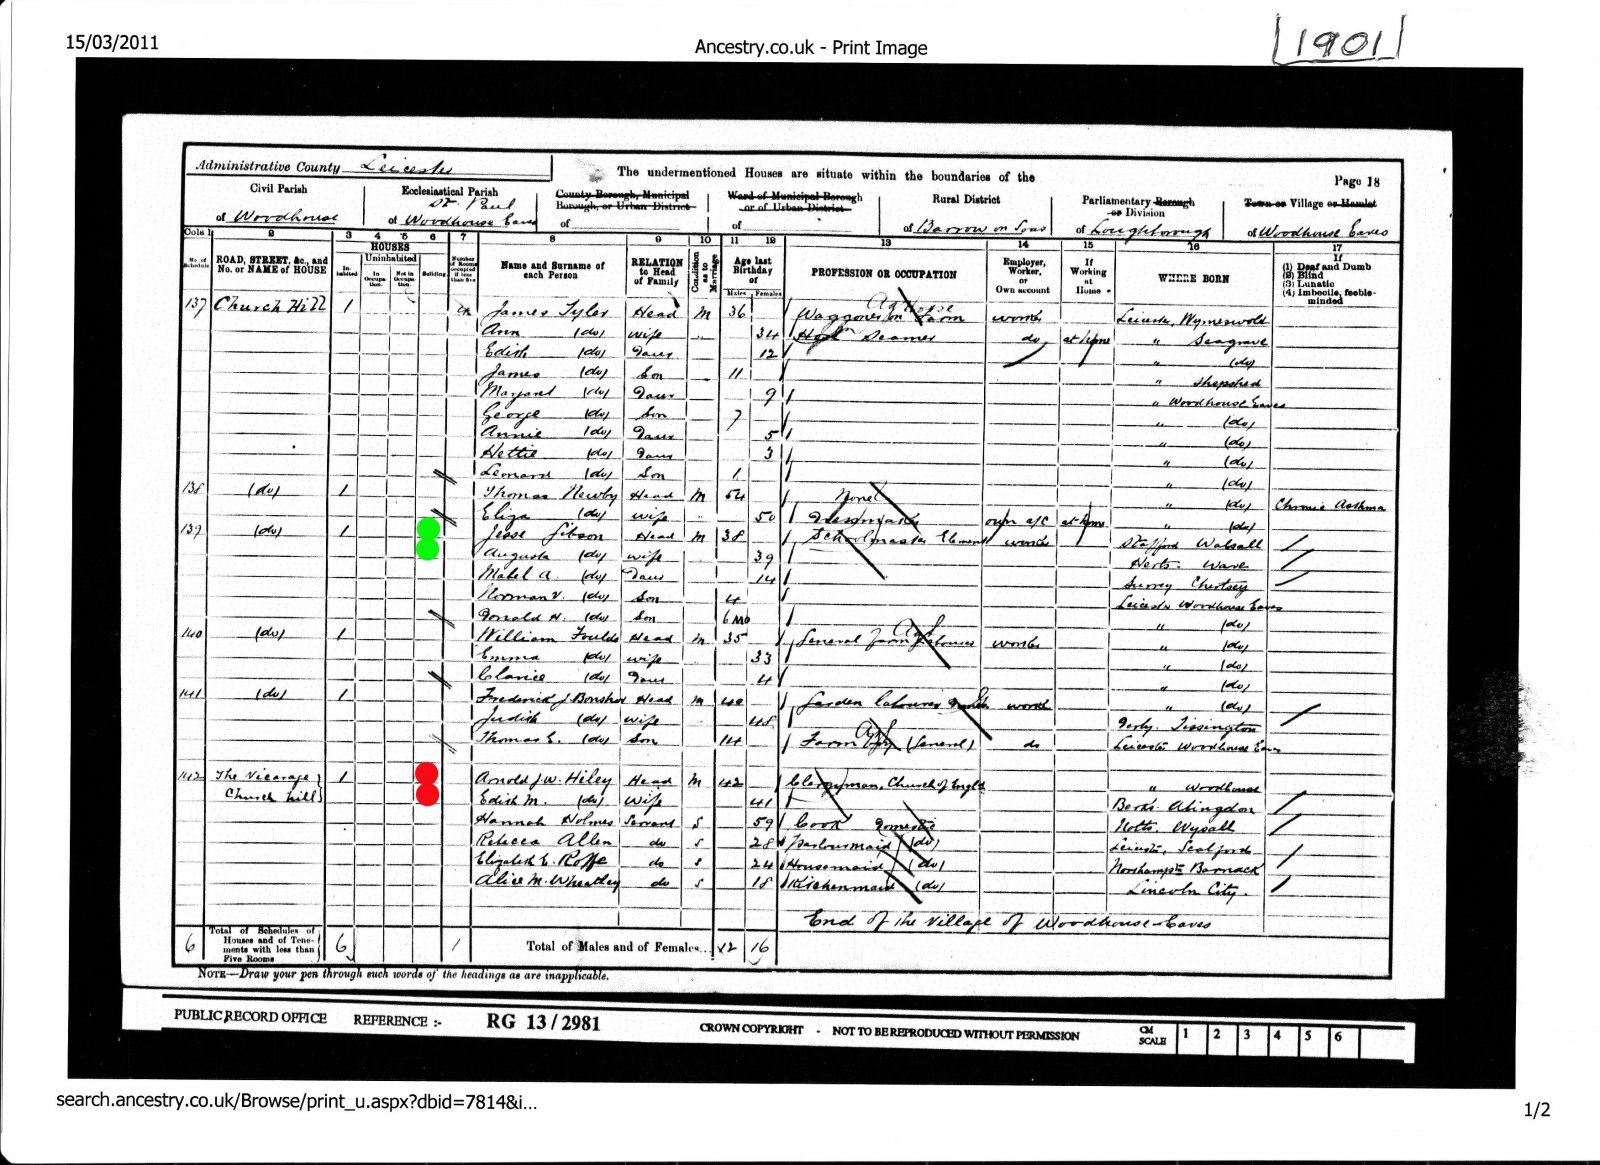 15/03/2011
Ancestry.co.uk - Print Image
1901
Administrative County Leicester
The undermentioned Houses are situate within the boundaries of the
Page 18
Civil Parish
of Woodhouse
Ecclesiastical Parish
St. Paul
of Woodhouse Eaves
County Borough, Municipal
Borough, or Urban District
of
Ward of Municipal Borough
or of Urban District
of
Rural District
of Barrow on Soar
Parliamentary Borough
or Division
of Loughborough
Town or Village or Hamlet
of Woodhouse Eaves
Cols 1 2 3 4 5 6 7 8 9 10 11 12 13 14 15 16 17
No. of Schedule
ROAD, STREET, &c., and No. or NAME of HOUSE
HOUSES
Inhabited
Uninhabited
In Occupation.
Not in Occupation.
Building.
Number of Rooms occupied if less than five
Name and Surname of each Person
RELATION to Head of Family
Condition as to Marriage
Age last Birthday of
Males Females
PROFESSION OR OCCUPATION
Employer, Worker, or Own account
If Working at Home
WHERE BORN
If
(1) Deaf and Dumb
(2) Blind
(3) Lunatic
(4) Imbecile, feeble-minded
137 Church Hill 1 James Tyler Head M 36 Waggoner on Farm worker Leicester, Wymeswold
Ann (do) wife 34 Seamer do at home " Seagrave
Edith (do) Daur 12 " (do)
James (do) Son 11 " Shepshed
Margaret (do) Daur 9 " Woodhouse Eaves
George (do) Son 7 " (do)
Annie (do) Daur 5 " (do)
Hettie (do) Daur 3 " (do)
Leonard (do) Son 1 " (do)
138 (do) 1 Thomas Newby Head M 54 None " (do) Chronic Asthma
Eliza (do) wife 50 Dressmaker own a/c at home " (do)
139 (do) 1 Jesse Gibson Head M 38 Schoolmaster Element worker Stafford Walsall
Augusta (do) wife 39 Herts. Ware
Mabel A (do) Daur 14 Surrey Chertsey
Norman V. (do) Son 4 Leicester Woodhouse Eaves
Donald H. (do) Son 6 mo " (do)
140 (do) 1 William Foulds Head M 35 General Farm Labourer worker " (do)
Emma (do) wife 33 " (do)
Clarice (do) Daur 4 " (do)
141 (do) 1 Frederick J Bonsher Head M 40 Garden labourer worker " (do)
Judith (do) wife 48 Derby. Tissington
Thomas E. (do) Son 14 Farm (General) do Leicester Woodhouse Eaves
142 The Vicarage 1 Arnold J. W. Hiley Head M 42 Clergyman, Church of Engld " Woodhouse
Church Hill Edith M. (do) Wife 41 Berks. Abingdon
Hannah Holmes Servant S 59 Cook Domestic Notts. Wysall
Rebecca Allen do S 28 Parlourmaid (do) Leicester, Scalford
Elizabeth E. Roffe do S 24 Housemaid (do) Northampton Barnack
Alice M. Wheatley do S 18 Kitchenmaid (do) Lincoln City.
End of the Village of Woodhouse-Eaves
6 Total of Schedules of Houses and of Tenements with less than Five Rooms 6 1 Total of Males and of Females... 12 16
NOTE—Draw your pen through such words of the headings as are inapplicable.
PUBLIC RECORD OFFICE REFERENCE :- RG 13/2981 CROWN COPYRIGHT - NOT TO BE REPRODUCED WITHOUT PERMISSION
CM SCALE 1 2 3 4 5 6
search.ancestry.co.uk/Browse/print_u.aspx?dbid=7814&i...
1/2